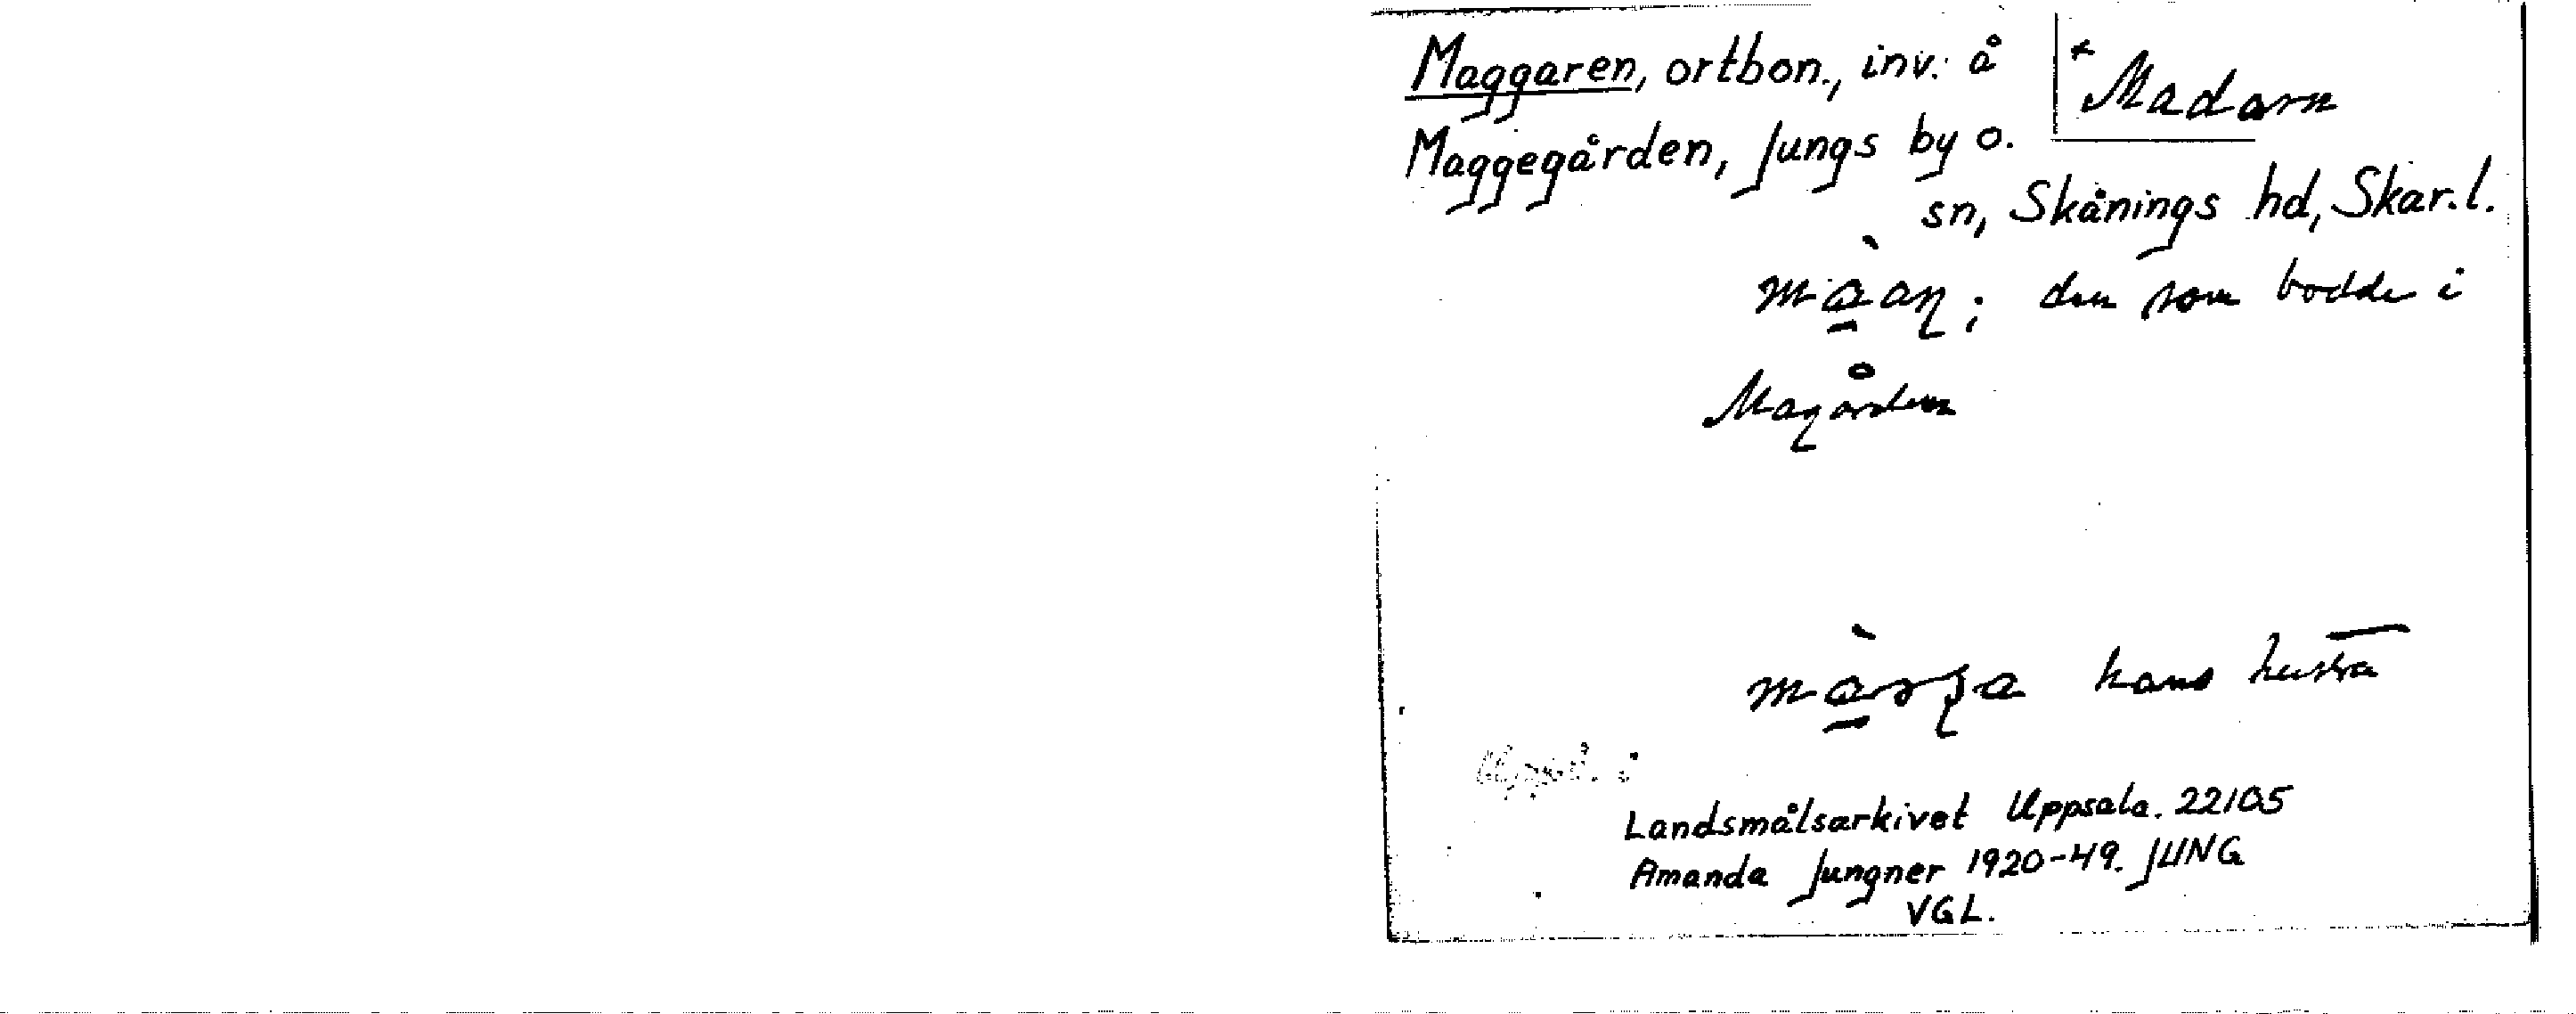 Maggaren, ortbon., inv. å
* Madarn
Maggegården, Jungs by o.
sn, Skånings hd, Skar.l.
den som bodde i
Magården
hans hustru
Landsmålsarkivet Uppsala. 22105
Amanda Jungner 1920-49. JUNG
VGL.